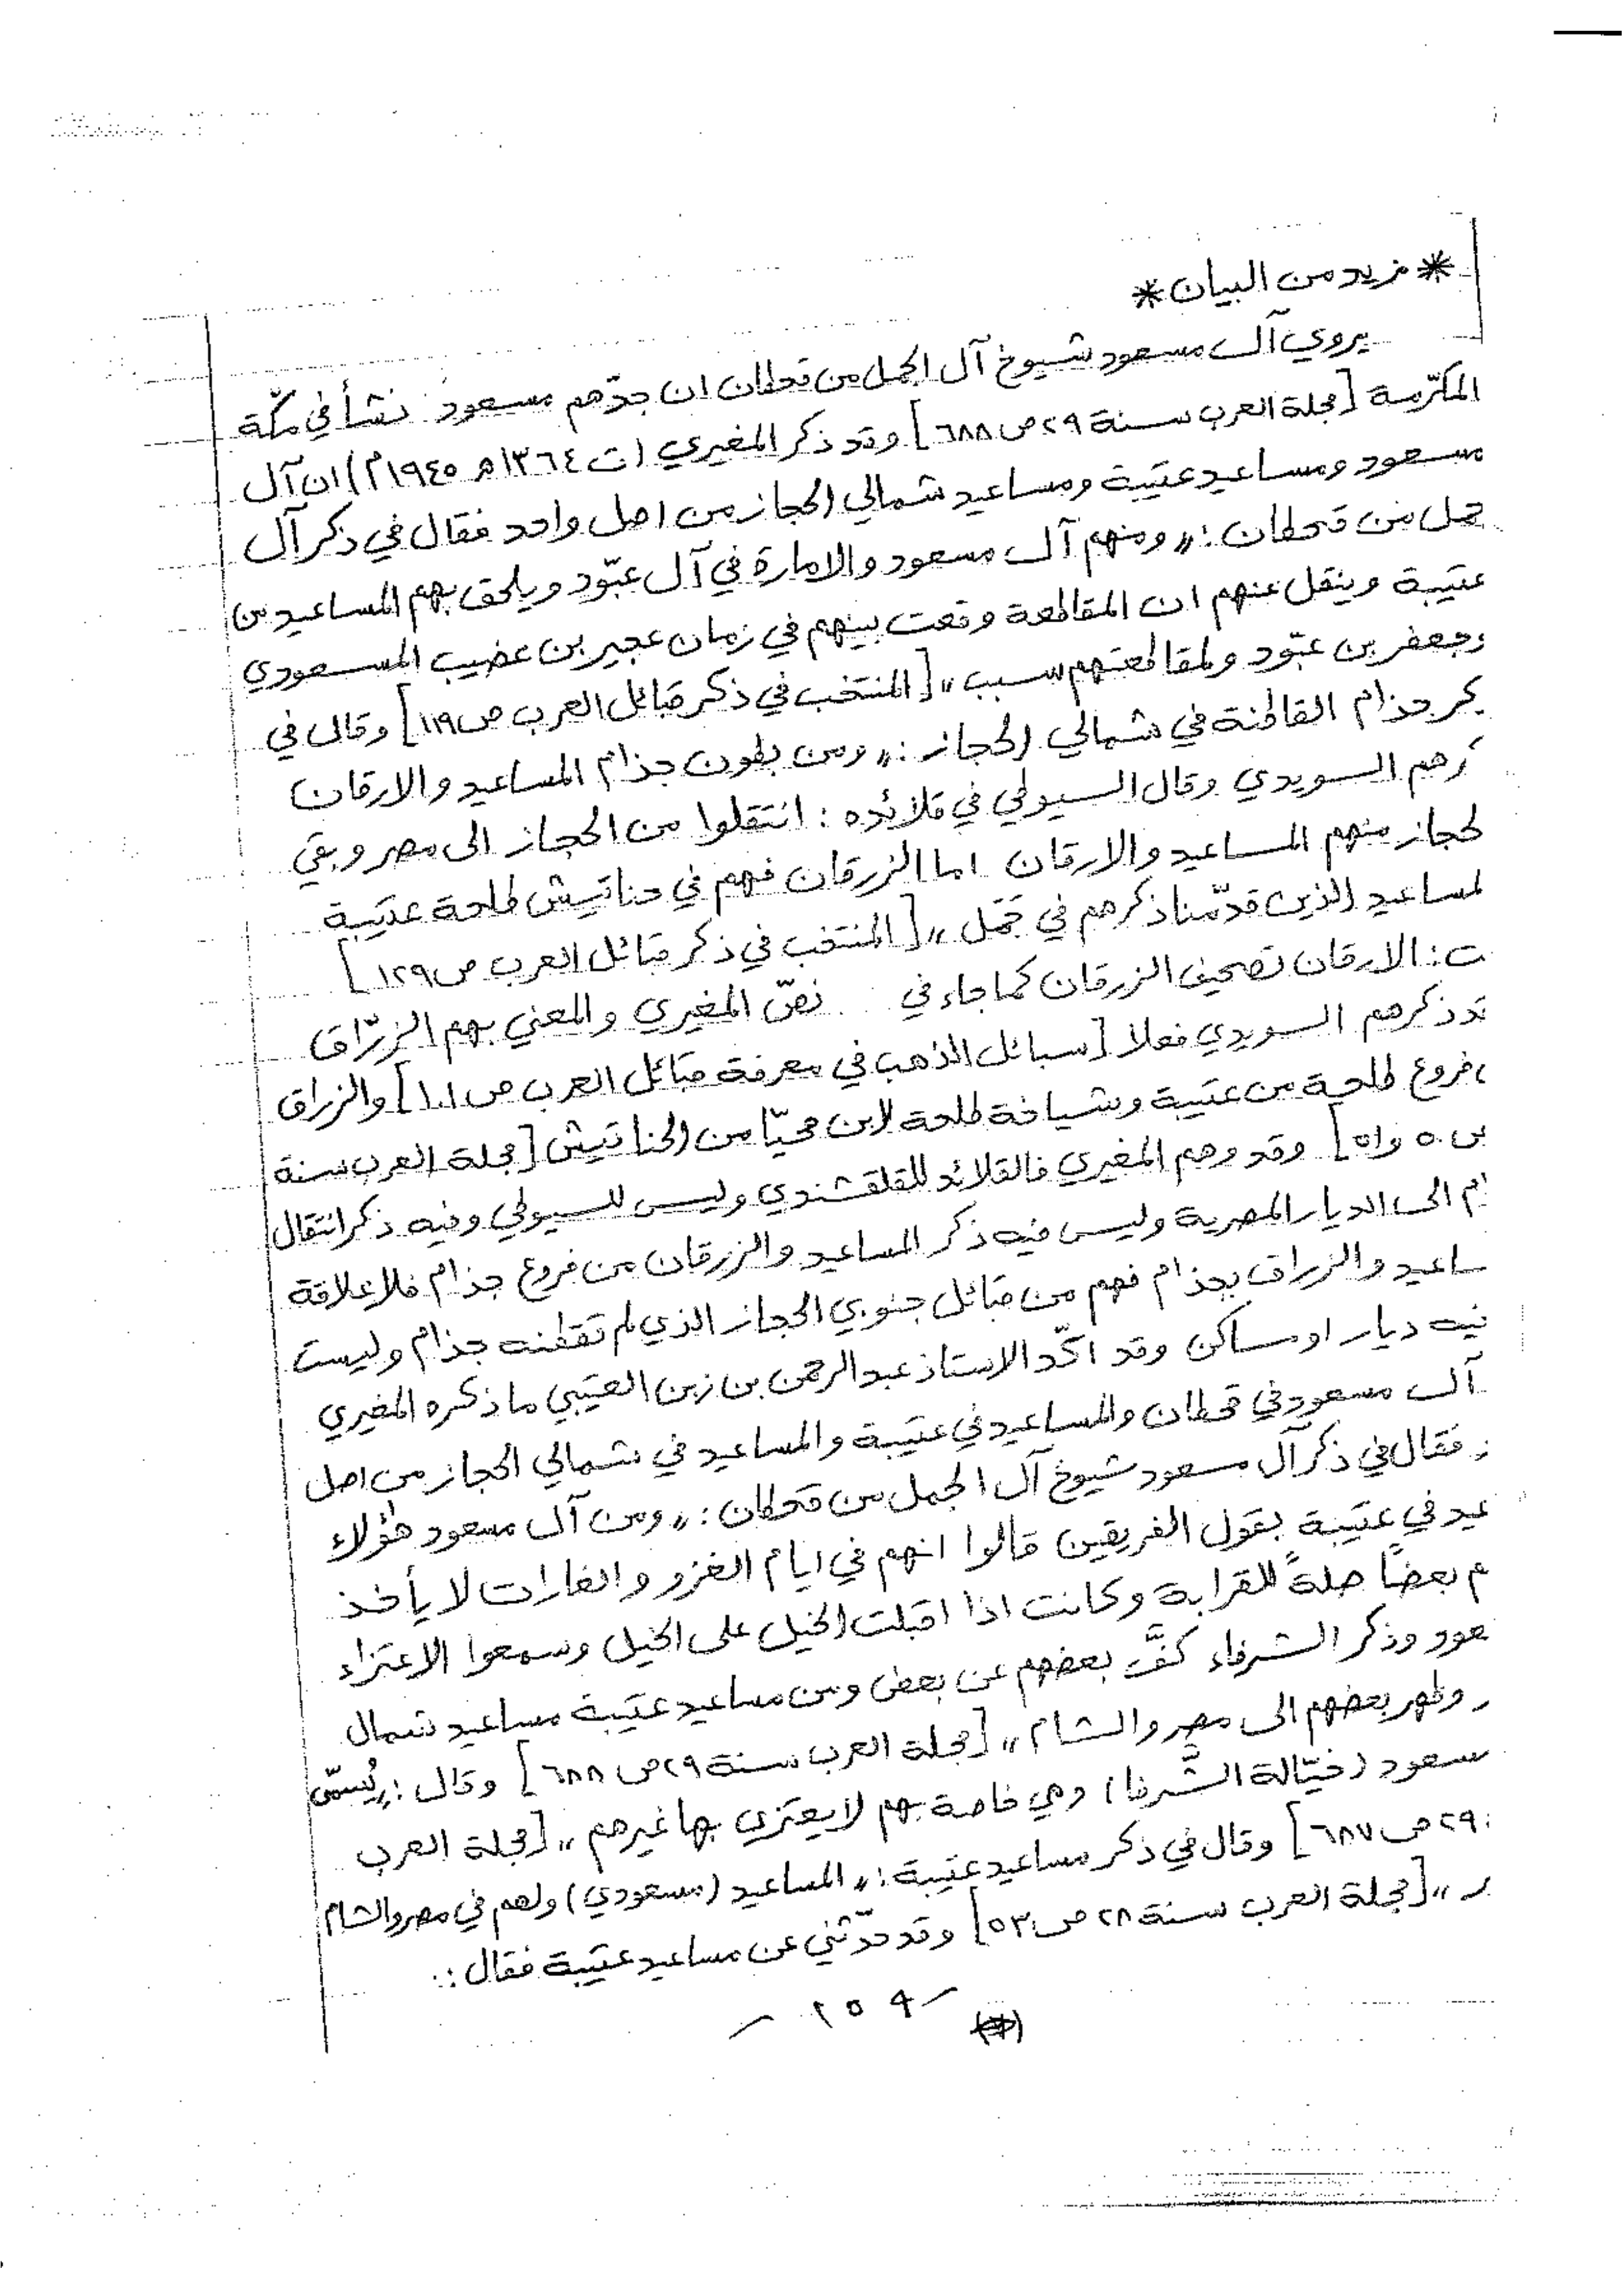 * مزيد من البيان *
يروي آل مسعود شيوخ آل الجمل من قحطان ان جدّهم مسعود نشأ في مكّة
المكرّمة [مجلة العرب سنة ٢٩ ص ٦٨٨] وقد ذكر المغيري (ت ١٣٦٤هـ ١٩٤٥م) ان آل
مسعود ومساعيد عتيبة ومساعيد شمالي الحجاز من اصل واحد فقال في ذكر آل
جمل من قحطان : „ ومنهم آل مسعود والامارة في آل عبّود ويلحق بهم المساعيد من
عتيبة وينقل عنهم ان المقاطعة وقعت بينهم في زمان عجير بن عضيب المسعودي
وجعفر بن عبّود ولمقاطعتهم سبب „ [المنتخب في ذكر قبائل العرب ص ١١٩] وقال في
كر جذام القاطنة في شمالي الحجاز : „ ومن بطون جذام المساعيد والارقان
رهم السويدي وقال السيوطي في قلائده : انتقلوا من الحجاز الى مصر وبقي
لحجاز منهم المساعيد والارقان اما الزرقان فهم في حناتيش طلحة عتيبة
لمساعيد الذين قدّمنا ذكرهم في جمل „ [المنتخب في ذكر قبائل العرب ص ١٢٩]
ت : الارقان تصحيف الزرقان كما جاء في نصّ المغيري والمعني بهم الزرّاق
قد ذكرهم السويدي فعلا [سبائك الذهب في معرفة قبائل العرب ص ١٠١] والزراق
ن فروع طلحة من عتيبة وشياخة طلحة لابن محيّا من الحناتيش [مجلة العرب سنة
ص ٥٠ و ٥١] وقد وهم المغيري فالقلائد للقلقشندي وليس للسيوطي وفيه ذكر انتقال
ام الى الديار المصرية وليس فيه ذكر المساعيد والزرقان من فروع جذام فلا علاقة
ساعيد والزراق بجذام فهم من قبائل جنوبي الحجاز الذي لم تقطنه جذام وليست
فيه ديار او مساكن وقد اكّد الاستاذ عبد الرحمن بن زبن العتيبي ما ذكره المغيري
آل مسعود في قحطان والمساعيد في عتيبة والمساعيد في شمالي الحجاز من اصل
فقال في ذكر آل مسعود شيوخ آل الجمل من قحطان : „ ومن آل مسعود هؤلاء
عيد في عتيبة بقول الفريقين قالوا انهم في ايام الغزو والغارات لا يأخذ
م بعضاً صلةً للقرابة وكانت اذا اقبلت الخيل على الخيل وسمعوا الاعتزاء
عود وذكر الشرفاء كفَّ بعضهم عن بعض ومن مساعيد عتيبة مساعيد شمال
ر وظهر بعضهم الى مصر والشام „ [مجلة العرب سنة ٢٩ ص ٦٨٨] وقال : „ يُسمّى
سعود (خيّالة الشَّرفا) وهي خاصة بهم لا يعتزي بها غيرهم „ [مجلة العرب
٢٩ ص ٦٨٧] وقال في ذكر مساعيد عتيبة : „ المساعيد (مسعودي) ولهم في مصر والشام
ر „ [مجلة العرب سنة ٢٨ ص ٥٣] وقد حدّثني عن مساعيد عتيبة فقال :
- ٢٥٩ -